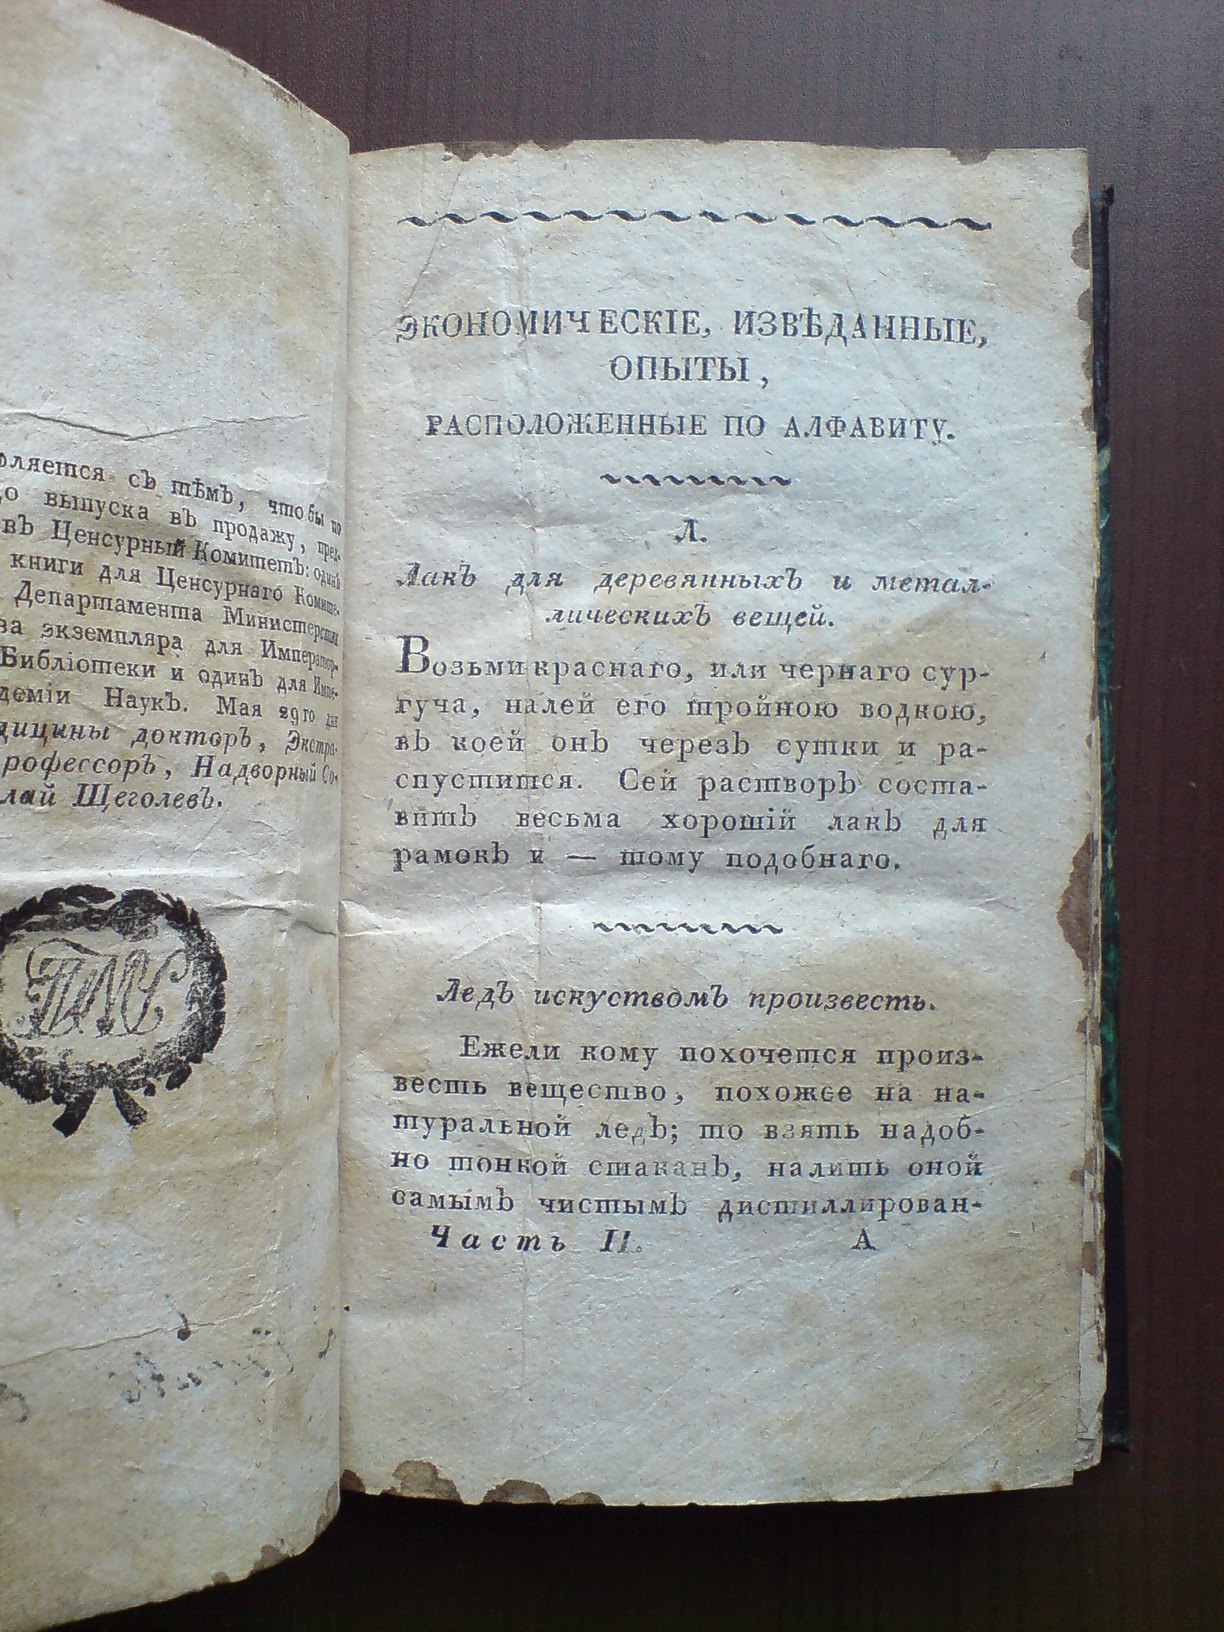 съ тѣмъ, чтобы по
до выпуска въ продажу, пред-
въ Ценсурный Комитетъ: одинъ
книги для Ценсурнаго Комите-
Департамента Министерства
экземпляра для Император-
Библіотеки и одинъ для Импе-
Наукъ. Мая 29го дня
докторъ, Экстра-
Надворный Со-
Щеголевъ.
ЭКОНОМИЧЕСКІЕ, ИЗВѢДАННЫЕ,
ОПЫТЫ,
РАСПОЛОЖЕННЫЕ ПО АЛФАВИТУ.
Л.
Лакъ для деревянныхъ и метал-
лическихъ вещей.
Возьми краснаго, или чернаго сур-
гуча, налей его тройною водкою,
въ коей онъ черезъ сутки и ра-
спустится. Сей растворъ соста-
витъ весьма хорошій лакъ для
рамокъ и — тому подобнаго.
Ледъ искуствомъ произвесть.
Ежели кому похочется произ-
весть вещество, похожее на на-
туральной ледъ; то взять надоб-
но тонкой стаканъ, налить оной
самымъ чистымъ дистиллирован-
Часть II. А